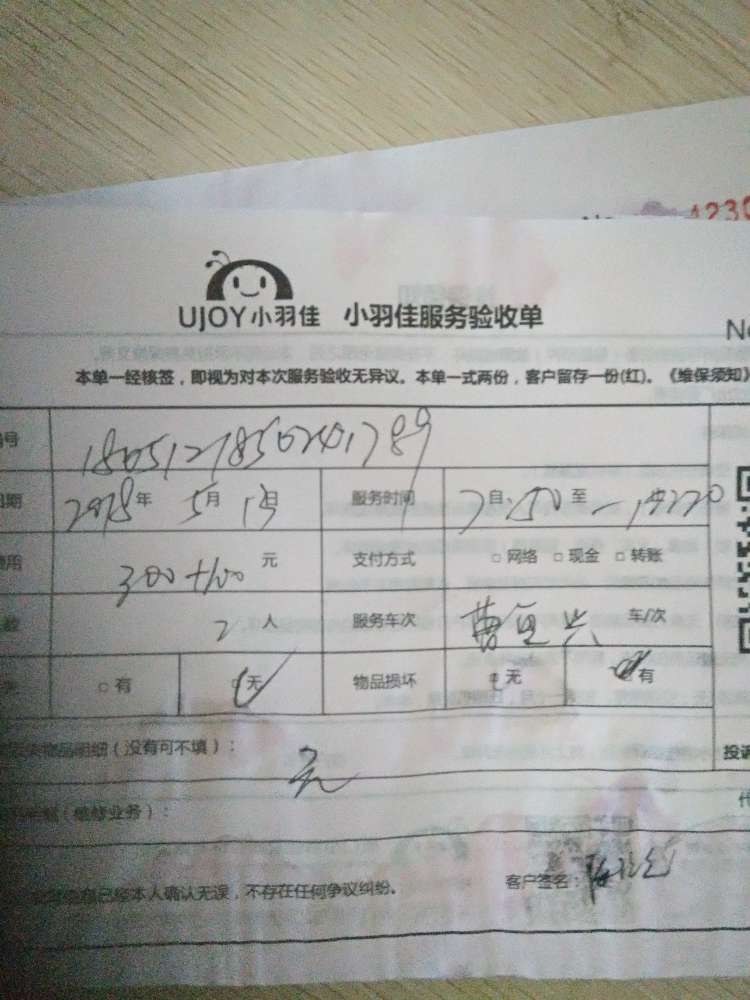 4230
UJOY小羽佳 小羽佳服务验收单
No
本单一经核签，即视为对本次服务验收无异议。本单一式两份，客户留存一份(红)。《维保须知》
号 18051218502241789
期 2018年 5月 13日 服务时间 7自:50至
用 300+100元 支付方式 □网络 □现金 □转账
数 2人 服务车次 曹宜兴 车/次
□有 □无 物品损坏 □无 □有
物品明细（没有可不填）： 无
投诉
（维修业务）：
代
已经本人确认无误，不存在任何争议纠纷。 客户签名：